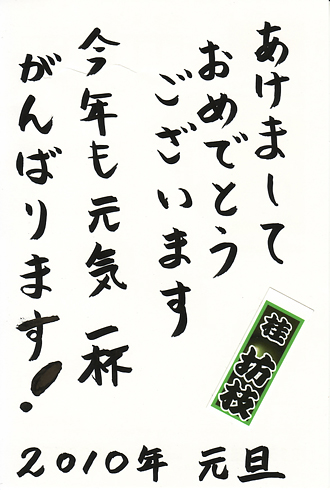 あけまして
おめでとう
ございます
今年も元気一杯
がんばります!
桂坊枝
2010年 元旦